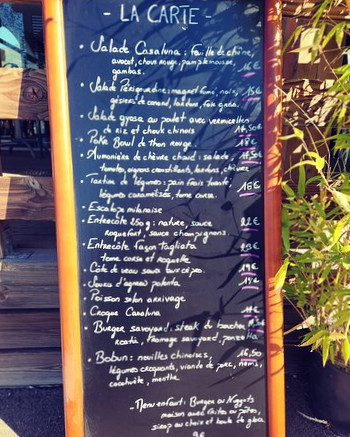 - LA CARTE -
• Salade Casaluna : feuille de chêne,
avocat, chou rouge, pamplemousse, 16 €
gambas.
• Salade Périgourdine : magret fumé, noix, 15 €
gésiers de canard, lardons, foie gras.
• Salade gyosa au poulet avec vermicelles
de riz et chouk chinois 16,50€
• Poke Bowl de thon rouge. 18€
• Aumonière de chèvre chaud : salade, 16,50€
tomates, oignons croustillants, lardons, chèvre
• Tartine de légumes : pain frais toasté, 16€
légumes caramélisés, tome corse.
• Escalope milanaise
• Entrecôte 250g : nature, sauce 22€
roquefort, sauce champignons.
• Entrecôte façon tagliata 23€
tome corse et roquette
• Côte de veau sauce 19€
• Souris d'agneau polenta 19€
• Poisson selon arrivage
• Croque Casaluna
• Burger savoyard : steak du boucher,
rostis, fromage savoyard,
• Bobun : nouilles chinoises, 16,50
légumes croquants, viande de porc, nems,
cacahuète, menthe.
- Menu enfant : Burger ou Nuggets
maison avec frites ou pâtes,
sirop au choix et boule de glace
9€